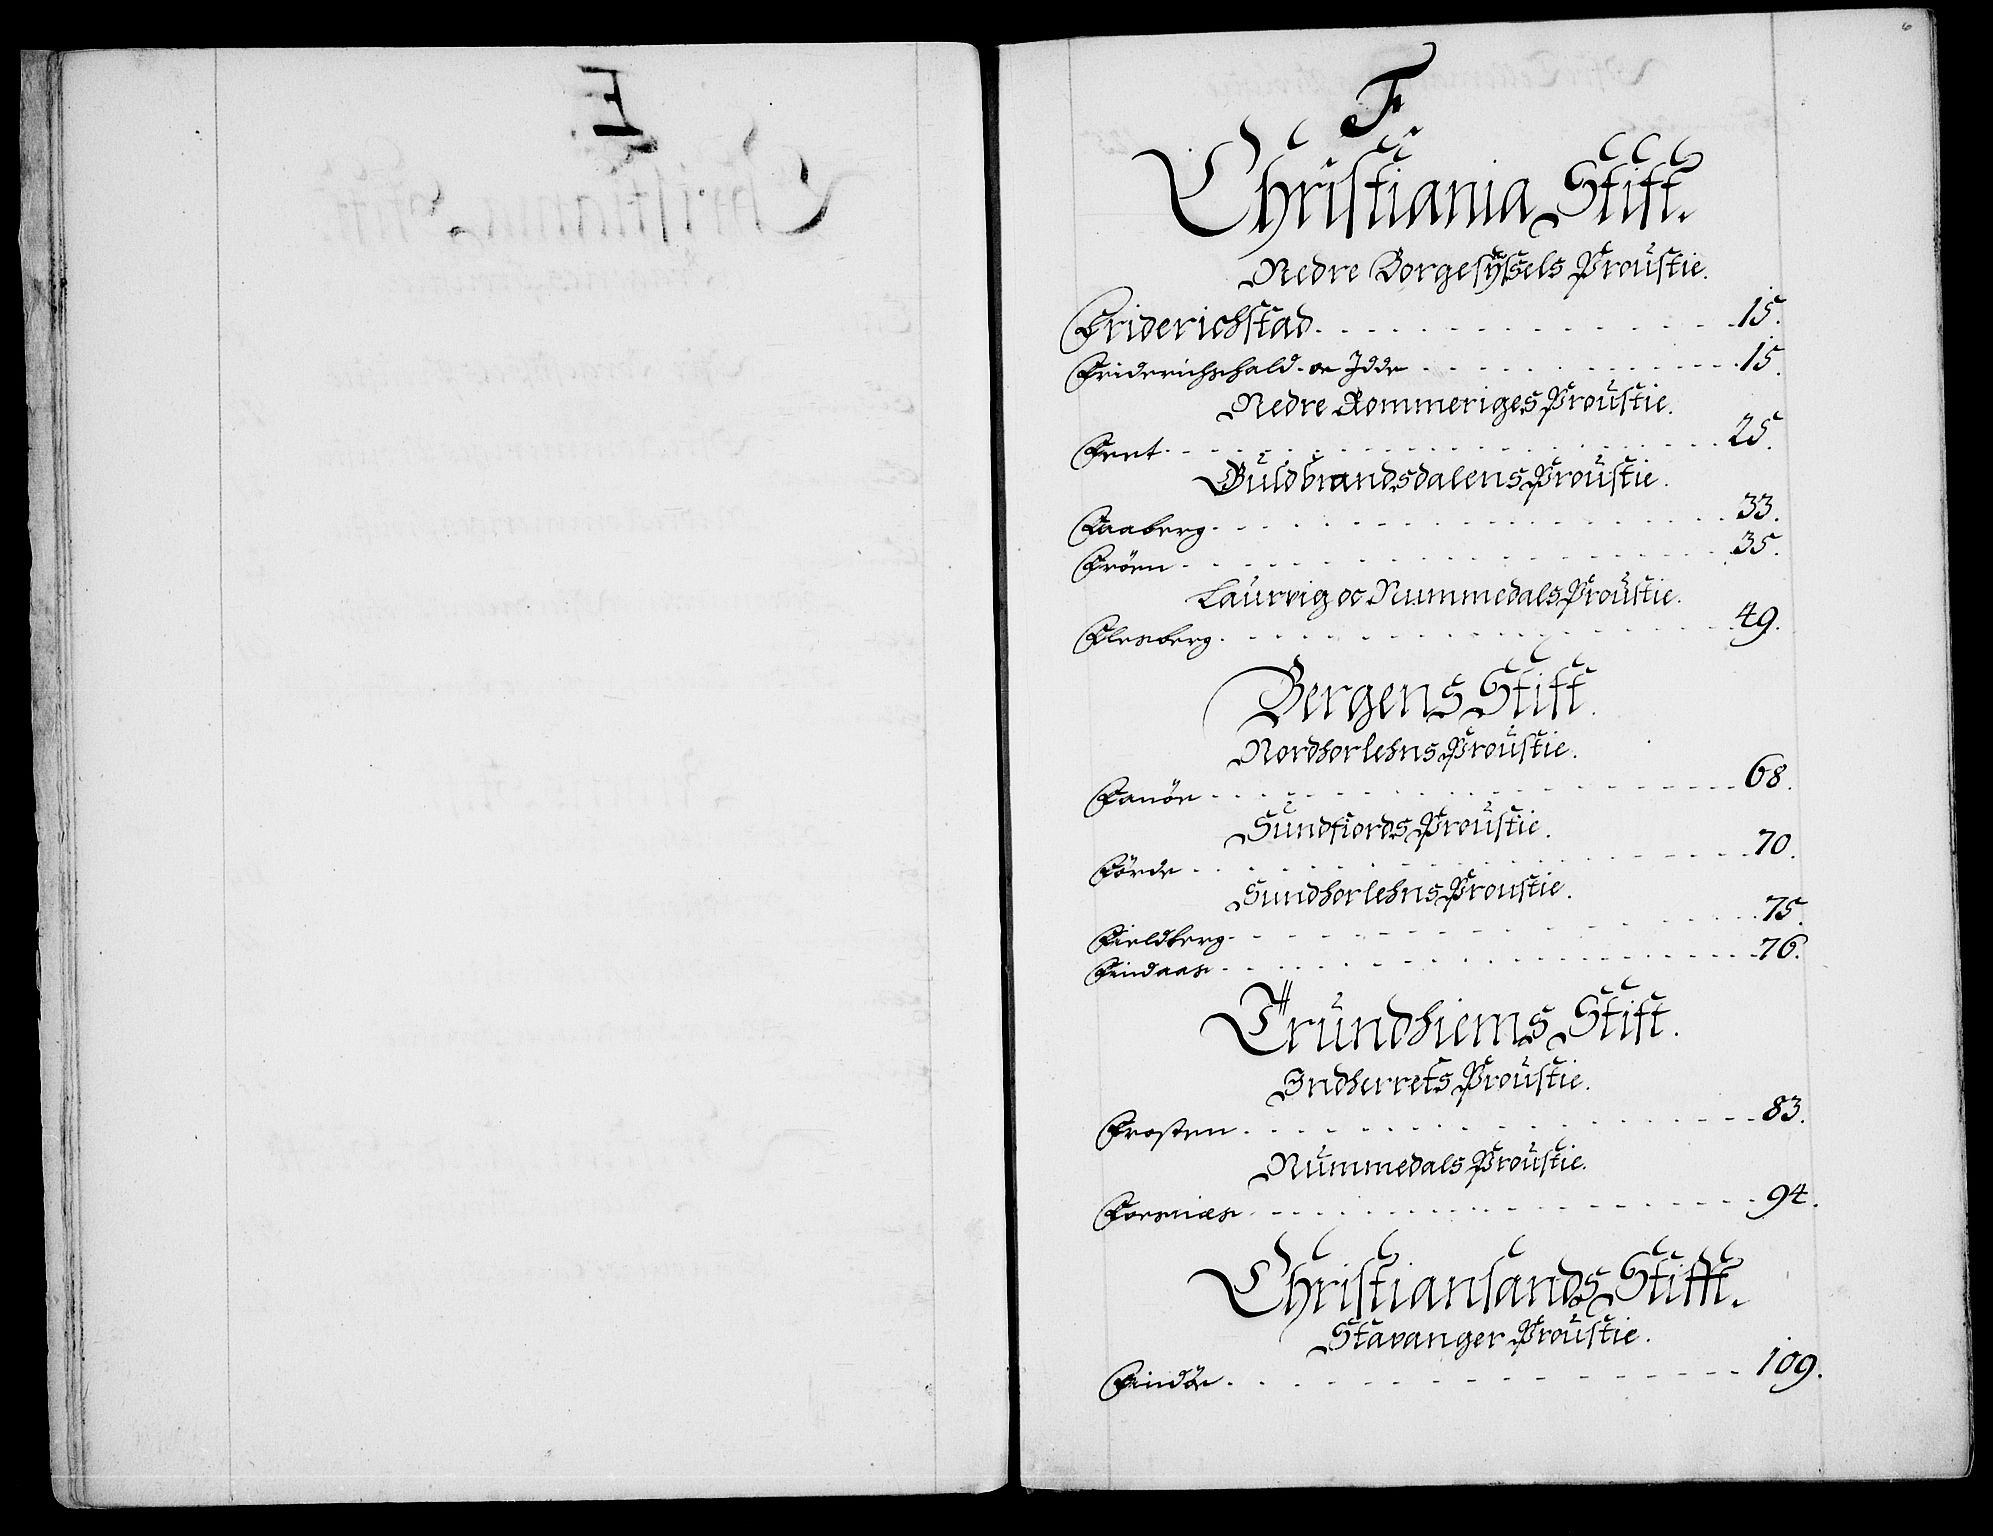 F
Christiania Stift.
Nedre Borgesÿssels Proustie.
Friderichstad. 15.
Friderichshald. oc Idde 15.
Nedre Rommeriges Proustie.
Feet 25.
Guldbrandsdalens Proustie.
Faaberg 33.
Fröen 35.
Laurvig oc Nummedals Proustie.
Flesberg. 49.
Bergens Stift.
Nordhorlehns Proustie.
Fanöe 68.
Sundfiords Proustie.
Förde 70.
Sundhorlehns Proustie.
Fieldberg 75.
Findaas 76.
Trundhiems Stift.
Indherrets Proustie.
Frosten 83.
Nummedals Proustie.
Fosnæs 94.
Christiansands Stifft.
Stavanger Proustie.
Findöe 109.